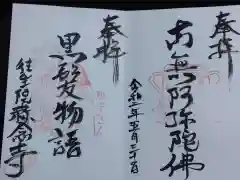 奉拝
南無阿弥陀佛
令和二年五月二十一日
奉拝
黒髪物語
往生院
念寺